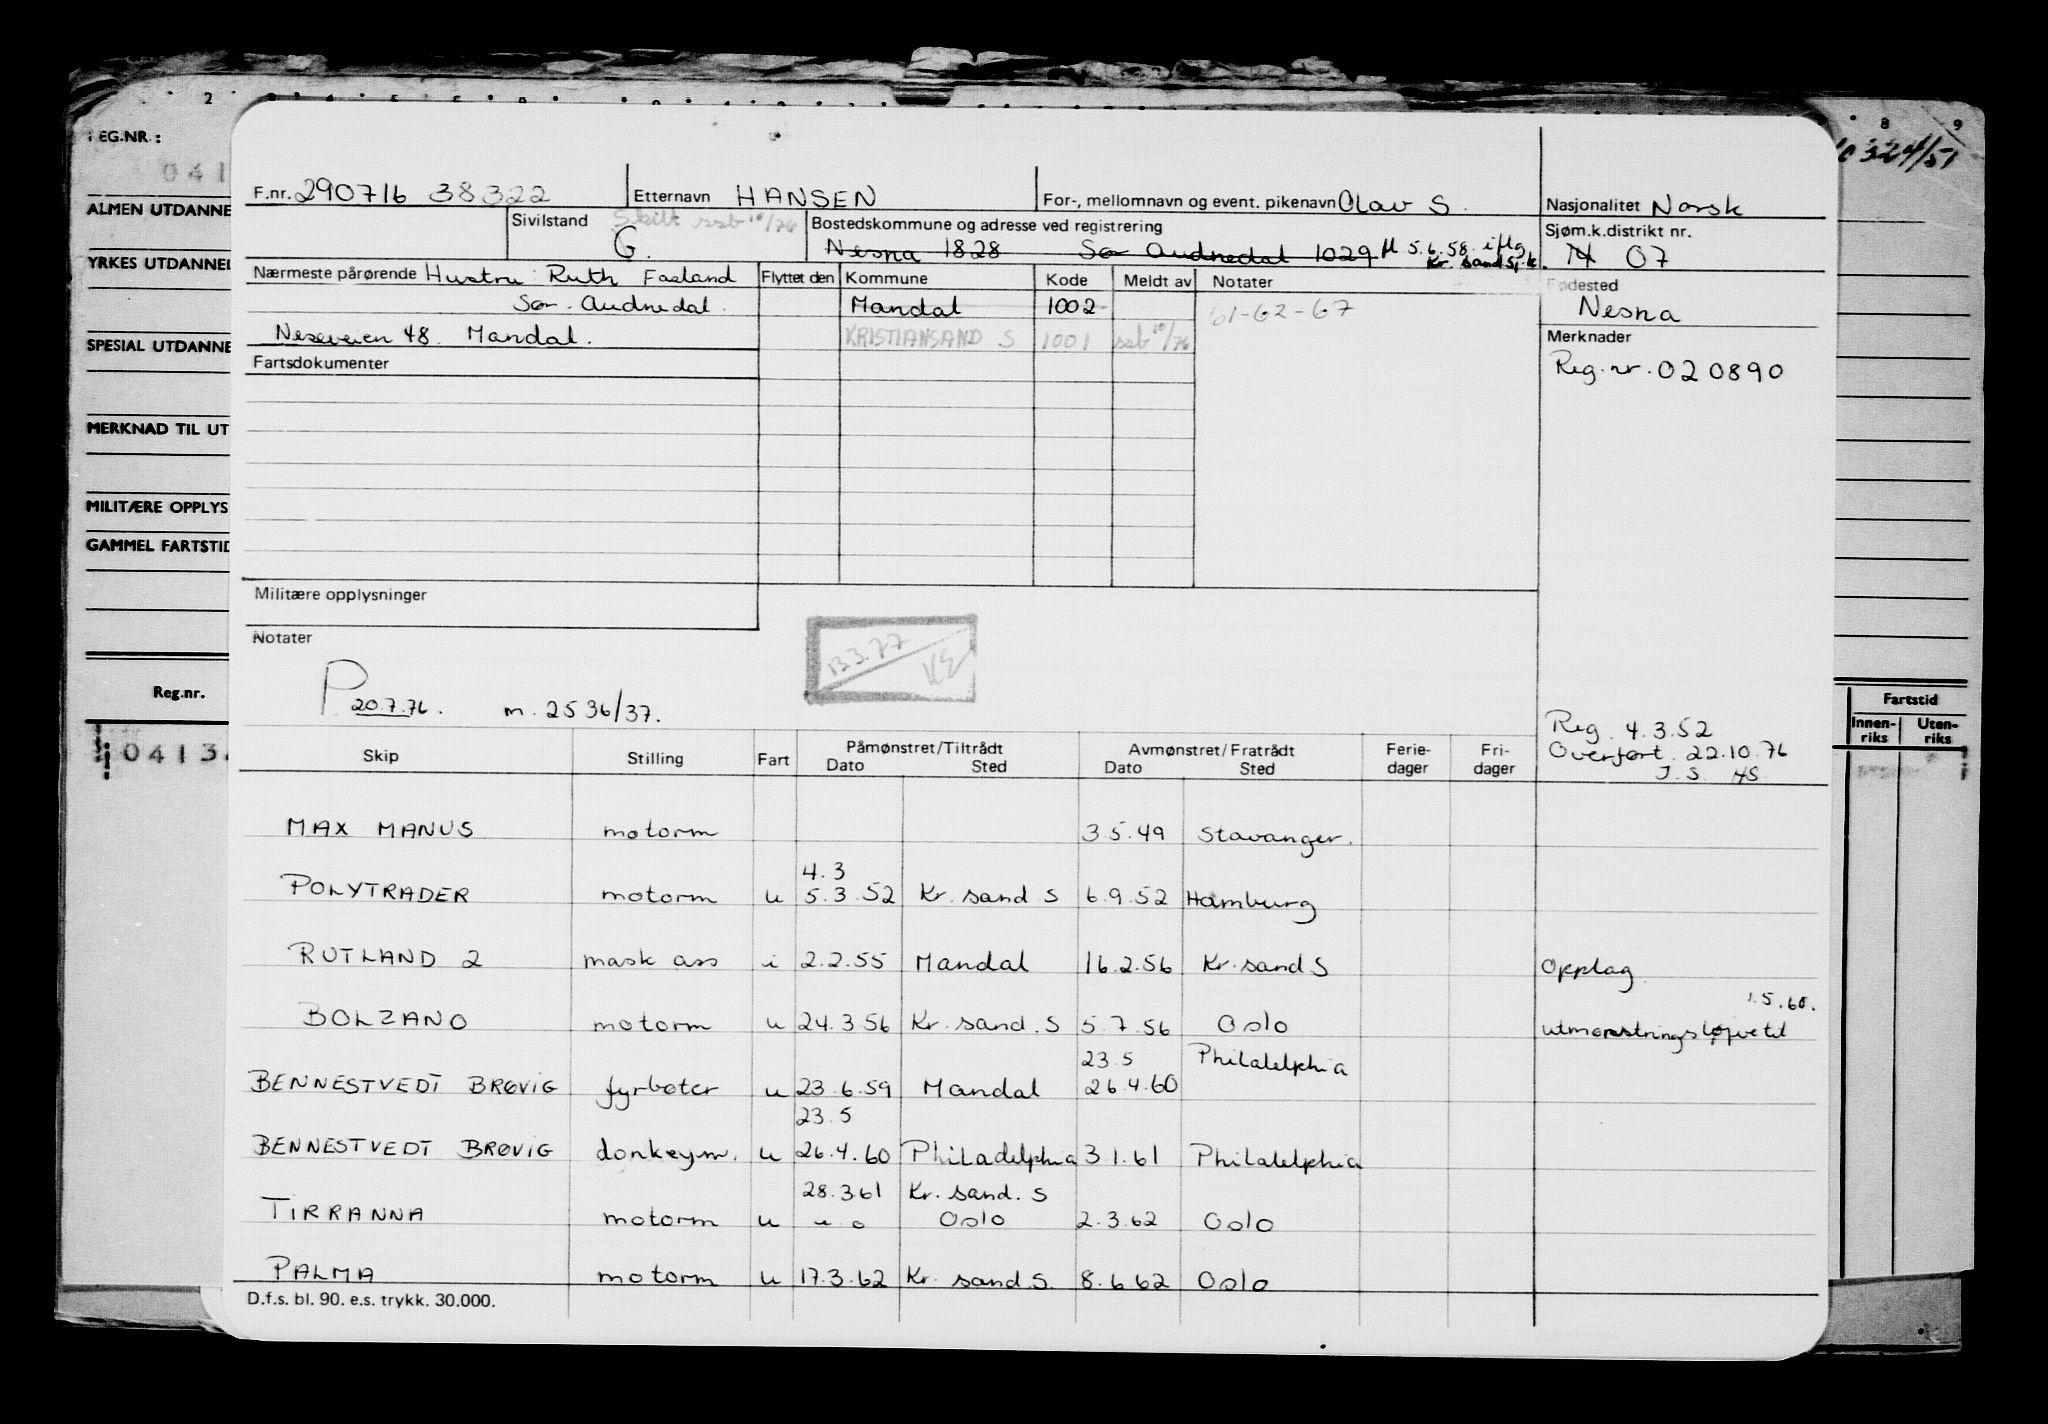 2 8 9
REG.NR.:
041
324/51
ALMEN UTDANNE
YRKES UTDANNEL
SPESIAL UTDANNE
MERKNAD TIL UT
MILITÆRE OPPLYS
GAMMEL FARTSTID
Reg.nr.
0413
Fartstid
Innen-riks Uten-riks
F.nr. 290716 38322 Etternavn HANSEN For-, mellomnavn og event. pikenavn Olav S. Nasjonalitet Norsk
Sivilstand Skilt ssb 10/76 G. Bostedskommune og adresse ved registrering Sjøm.k.distrikt nr.
Nesna 1828 Sør Audnedal 1029 fl 5.6.58 iflg. Kr. sand sj.k. N 07
Nærmeste pårørende Hustru: Ruth Faeland Flyttet den Kommune Kode Meldt av Notater Fødested
Sør-Audnedal. Mandal 1002 61-62-67 Nesna
Neseveien 48. Mandal. KRISTIANSAND S 1001 ssb 10/76 Merknader
Fartsdokumenter Reg.nr. 020890
Militære opplysninger
Notater
13.3.77 KE
P. 20.7.76. m. 2536/37.
Reg. 4.3.52
Overført. 22.10.76
J.S. HS
Skip Stilling Fart Påmønstret/Tiltrådt Avmønstret/Fratrådt Ferie-dager Fri-dager
Dato Sted Dato Sted
MAX MANUS motorm 3.5.49 Stavanger.
4.3
POLYTRADER motorm u 5.3.52 Kr. sand S 6.9.52 Hamburg
RUTLAND 2 mask ass i 2.2.55 Mandal 16.2.56 Kr. sand S Opplag
1.5.60.
BOLZANO motorm u 24.3.56 Kr. sand. S 5.7.56 Oslo utmønstringsløyve til
23.5 Philalelphia
BENNESTVEDT BRØVIG fyrbøter u 23.6.59 Mandal 26.4.60
23.5
BENNESTVEDT BRØVIG donkeym. u 26.4.60 Philadelphia 3.1.61 Philalelphia
28.3 61 Kr. sand. S
TIRRANNA motorm u u o Oslo 2.3.62 Oslo
PALMA motorm u 17.3.62 Kr. sand S. 8.6.62 Oslo
D.f.s. bl. 90. e.s. trykk. 30.000.